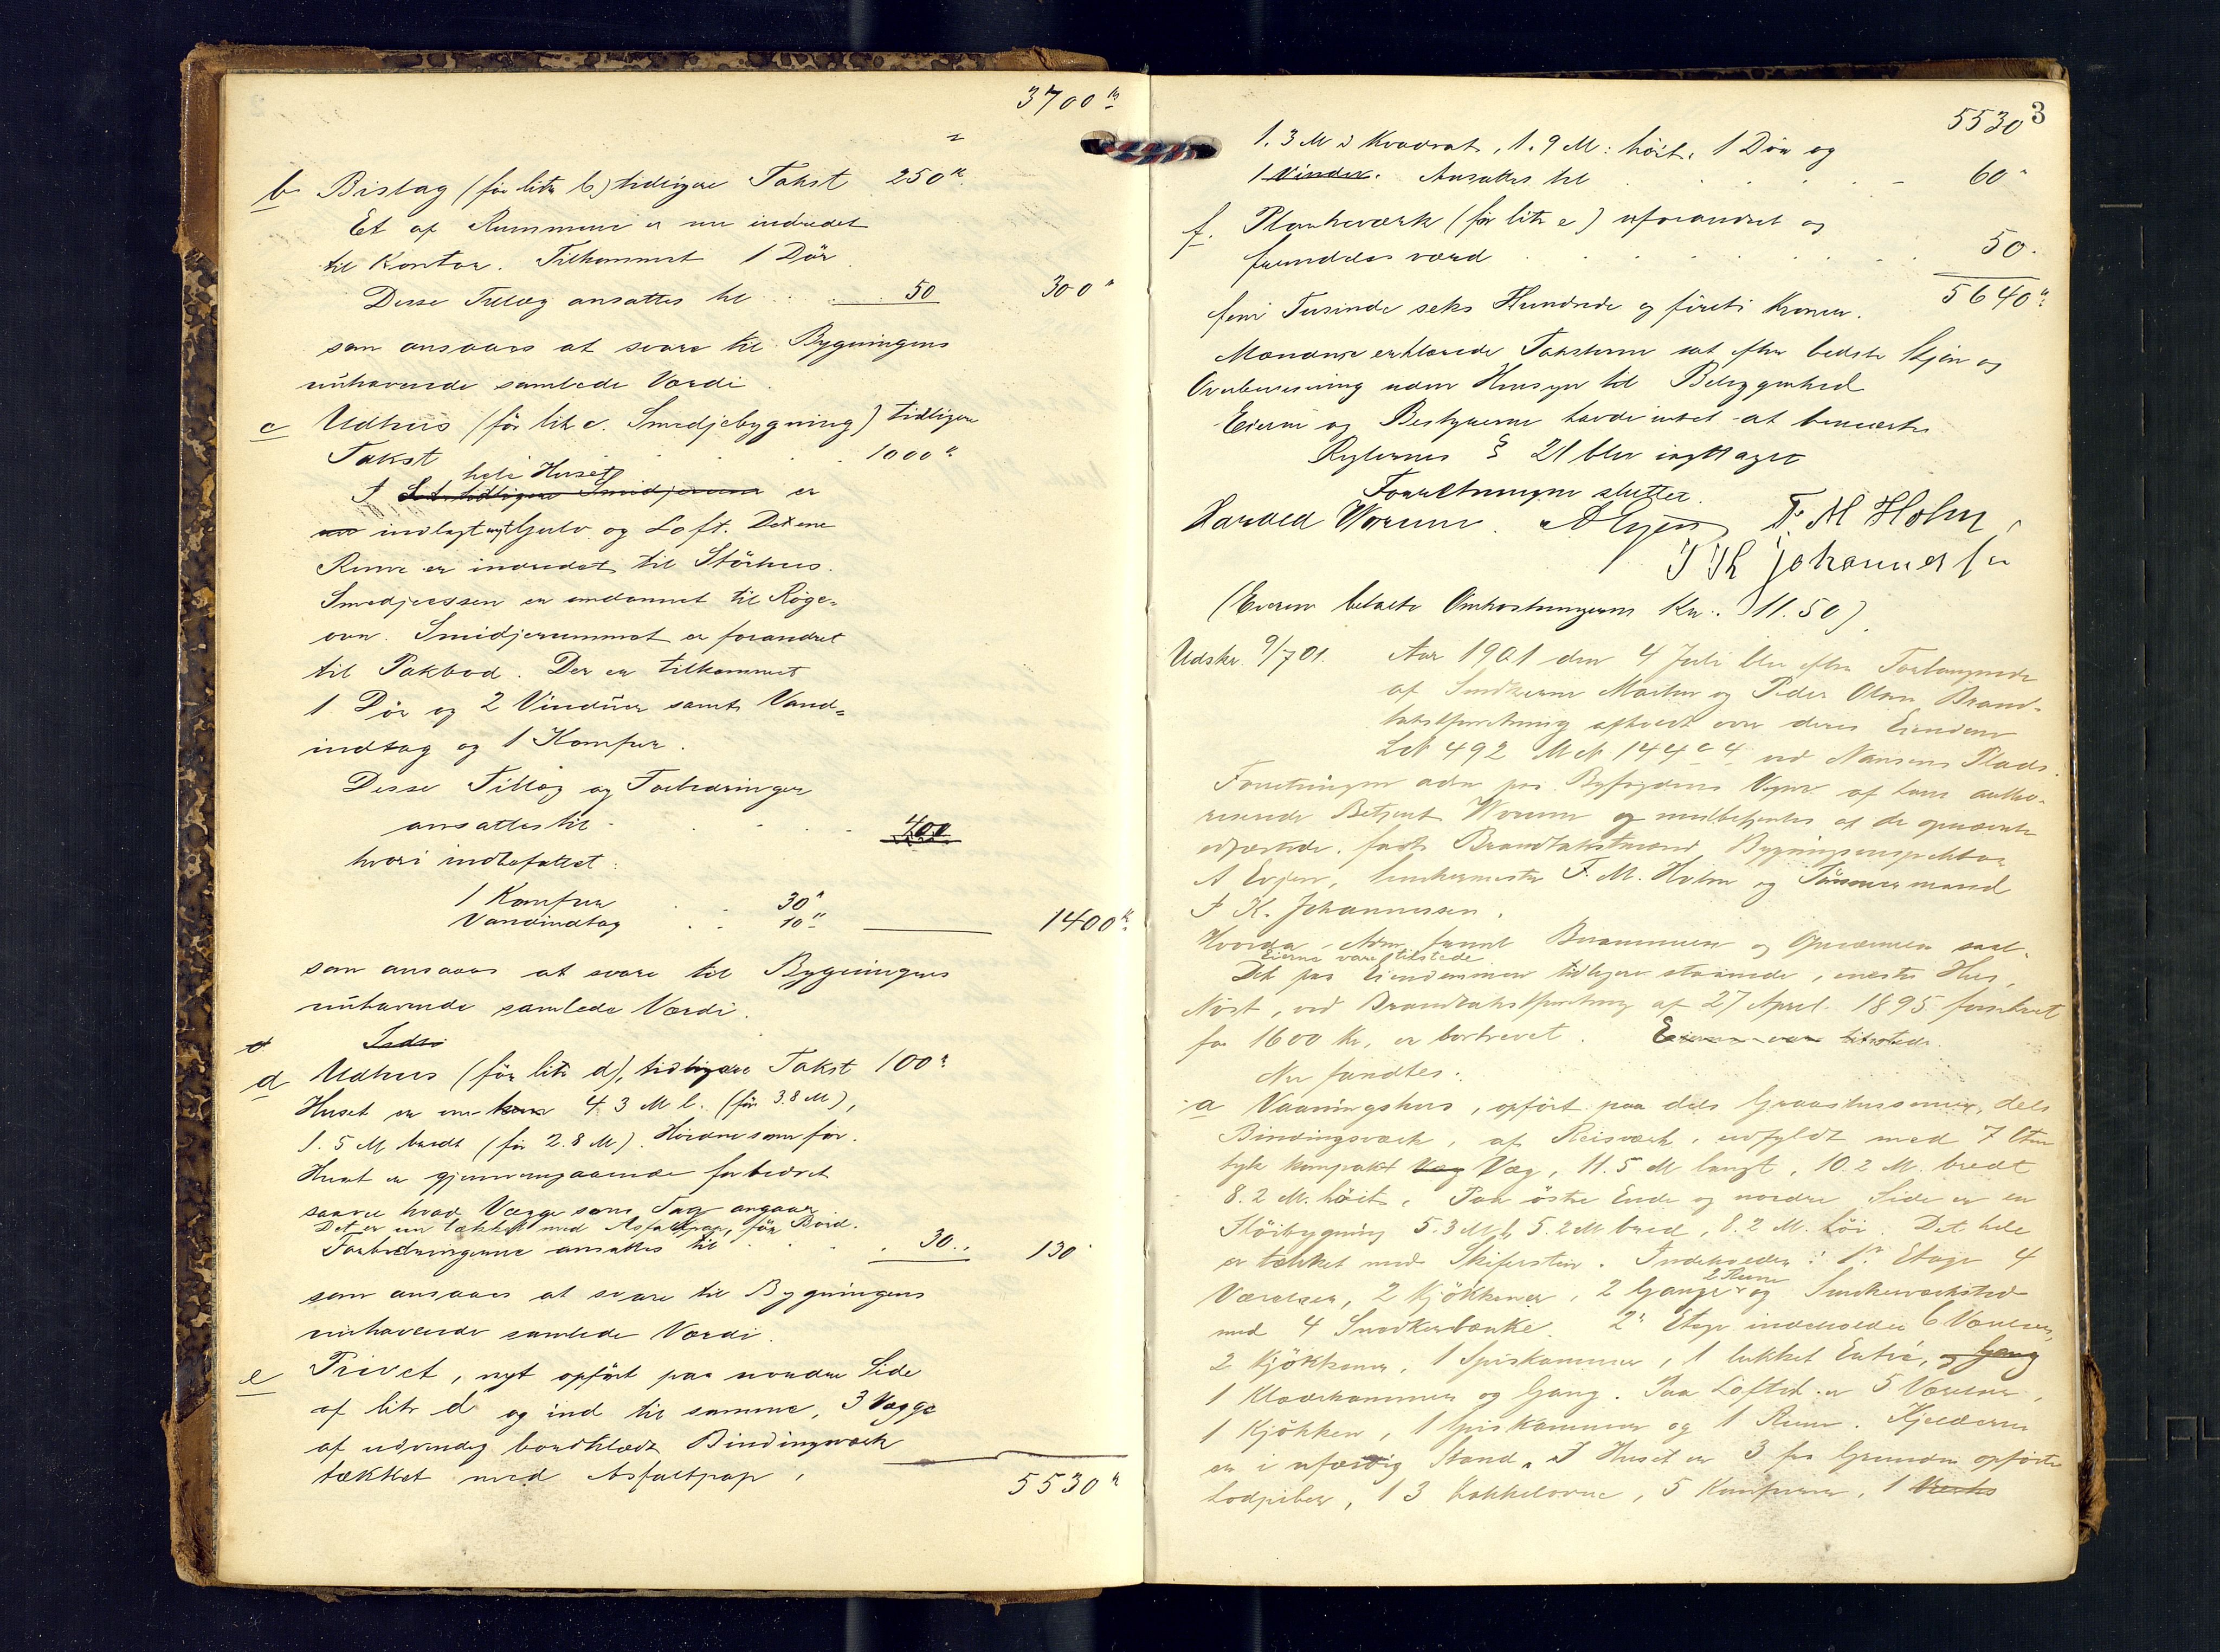 3700 kr
b Bislag (før litr b) tidligere Takst 250 kr
Et af Rummene er nu indredet
til Kontor. Tilkommet 1 Dör
Disse Tillæg ansattes til . . 50 300 "
som ansaaes at svare til Bygningens
nuhavende samlede Værdi.
c Udhus (för litr c. Smedjebygning) tidligere
Takst . . . . 1000 "
hele Huset
I Det tidligere Smidjerum er
nu indlagt nyt Gulv og Loft. Det ene
Rum er indredet til Störhus.
Smedjeessen er omdannet til Röge-
ovn. Smidjerummet er forandret
til Pakbod. Der er tilkommet
1 Dör og 2 Vinduer samt Vand-
indtag og 1 Komfur.
Disse Tillæg og Forbedringer
ansattes til . . . . 400
hvori indbefattet:
1 Komfur . . 30 "
Vandindtag . . 10 " 1400 kr
som ansaaes at svare til Bygningens
nuhavende samlede Værdi.
d Udhus (för litr d), tidligere Takst 100 "
Huset er nu kun 4.3 M l. (för 3.8 M),
1.5 M bredt (för 2.8 M). Höiden som för.
Huset er gjennemgaaende forbedret
saavel hvad Vægge som Tag angaar
Det er nu tækket med Asfaltpap, för Bord.
Forbedringerne ansattes til . . . 30 " 130 "
som ansaaes at svare til Bygningens
nuhavende samlede Værdi.
e Privet, nyt opfört paa nordre Side
af litr d og ind til samme, 3 Vægge
af udvendig bordklædt Bindingsværk
tækket med Asfaltpap,
5530 "
3
5530
1.3 M i Kvadrat, 1.9 M: höit. 1 Dör og
1 Vindu. Ansattes til . . . . . 60 "
f. Plankeværk (för litr e) uforandret og
fremdeles værd . . . . . . 50 "
5640 "
fem Tusinde seks Hundrede og firti Kroner.
Mændene erklærede Taksterne sat efter bedste Skjön og
Overbevisning uden Hensyn til Beliggenhed
Eierne og Bestyrerne havde intet at bemærke
Reglernes § 21 blev iagttaget
Forretningen sluttet.
Harald Worum. A Evjen F. M Holm
I K Johannessen
(Eieren betalte Omkostningerne Kr. 11.50)
Udskr. 9/7 01. Aar 1901 den 4 Juli blev efter Forlangende
af Snedkerne Martin og Peder Olsen Brand-
takstforretning afholdt over deres Eiendom
LN 492 MN 144 c 4 ved Nansens Plads.
Forretningen adm paa Byfogdens Vegne af hans autho-
riserede Betjent Worum og medbetjentes af de opnævnte
edfæstede, faste Brandtakstmænd Bygningsinspektör
A Evjen, Snekkermester F. M. Holm og Tömmermand
I K. Johannessen.
Hvorda Adm fremlagde Berammelse og Opnævnelse saal.
Eierne vare tilstede
Det paa Eiendommen tidligere staaende, eneste Hus,
Nöst, ved Brandtakstforretning af 27 April 1895 forsikret
for 1600 Kr, er bortrevet. Eierne var tilstede.
Nu fandtes:
a Vaaningshus, opfört paa dels Graastensmur, dels
Bindingsværk, af Reisværk, udfyldt med 7 Ctm
tyk kompakt Væg Væg, 11.5 M langt, 10.2 M. bredt
8.2 M. höit. Paa östre Ende og nordre Side er en
Tilbygning 5.3 M l, 5.2 M bred, 8.2 M. höi. Det hele
er tækket med Skifersten. Indeholder: 1ste Etage 4
2 Rum
Værelser, 2 Kjökkener, 2 Gange og Snekkerværksted
med 4 Snedkerbænke. 2den Etage indeholder 6 Værelser,
2 Kjökkener, 1 Spiskammer, 1 lukket Entré, og Gang
1 Klædekammer og Gang. Paa Loftet er 5 Værelser,
1 Kjökken, 1 Spiskammer og 1 Rum. Kjelderen
er i ufærdig Stand. I Huset er 3 fra Grunden opförte
Lodpiber, 13 Kakkelovne, 5 Komfurer, 1